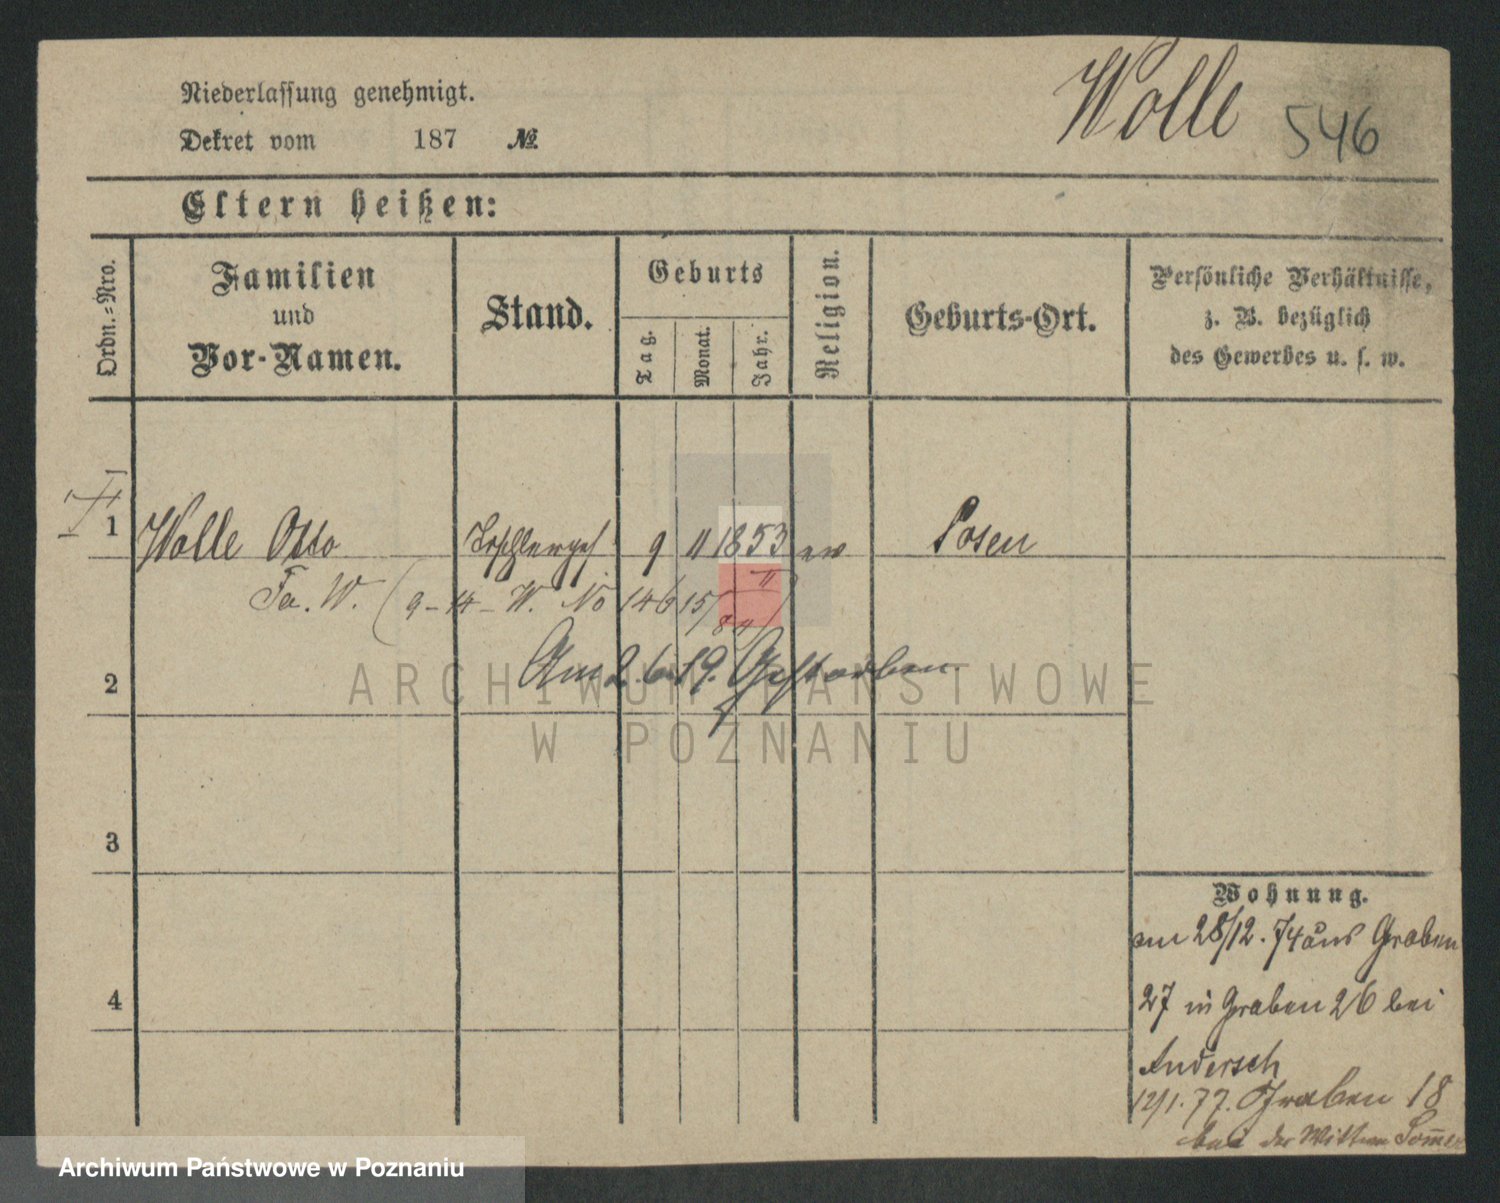 Niederlassung genehmigt.
Dekret vom 187 №
Wolle 546
Eltern heißen:
Ordn.-Nro.
Familien
und
Vor-Namen.
Stand.
Geburts
Tag.
Monat.
Jahr.
Religion.
Geburts-Ort.
Persönliche Verhältnisse,
z. B. bezüglich
des Gewerbes u. s. w.
1 Wolle Otto 9 11 1853 ev Posen
Fa. W. (9-14- W. No 146 15/II 84)
Am 2. 6. 19. Gestorben.
2
3
4
Wohnung.
am 28/12. 74 aus Graben
27 in Graben 26 bei
Andersch
12/1. 77. Graben 18
bei der Wittwe
ARCHIWUM PAŃSTWOWE
W POZNANIU
Archiwum Państwowe w Poznaniu